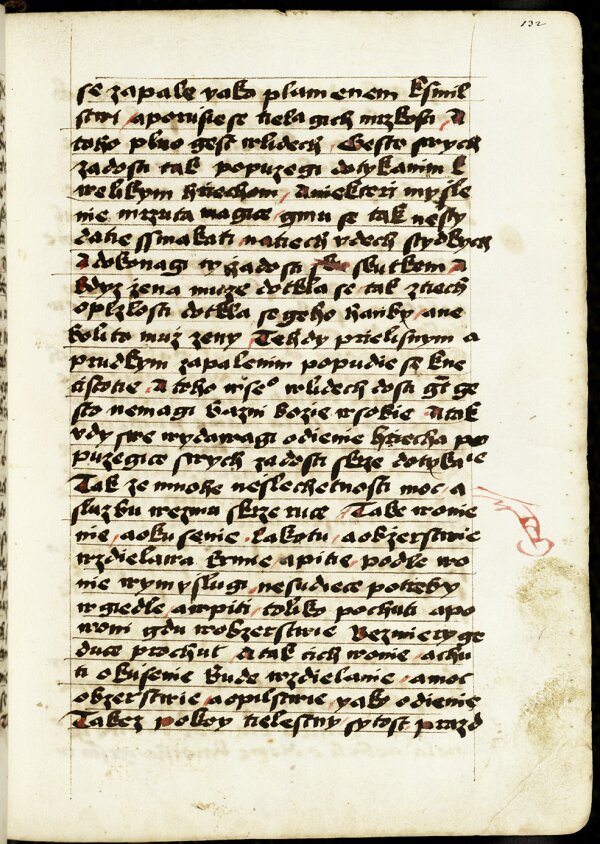 132
sě zapale yako plamenem k smil
stwi a porusie se tiela gich mrzkosti A
toho plno gest w lidech Gesto swych
zadosti tak popuzegi dotykanim k
welikym hrziechom A niekterzi mysle
nie mrzuta magice gmu se tak nesty
datie ssmakati na tiech vdech stydkych
A dokonagi ty zadosti skutkem A
kdyz zena muze dotkla se tak z tiech
oplzlosti dotkla se geho hanby a ne
bo lito muz zeny Tehdy prielisnym a
prudkym zapalenim popudie se k ne
cistotie A toho wseº w lidech dosti gt ge
sto nemagi bazni bozie w sobie A tak
vdy swe wydawagi odienie hrziecha po
puzegice swych zadosti skrze dotyka ie
Tak ze mnohe neslechetnosti moc a
sluzbu wezmu skrze ruce Take wonie
nie a okusenie lakotu a obzerstwie
wzdielawa krmie a pitie podle wo
nie wymyslugi nesudiece potrzeby
w giedle a w piti toliko pochuti a po
woni gdu w obzerstwie Bezmiery ge
duce pro chut A tak tich wonie a chu
ti okusenie bude wzdielanie a moc
obzerstwie a opilstwie yako odienie
Takez pokoy tielestny sytost prazd